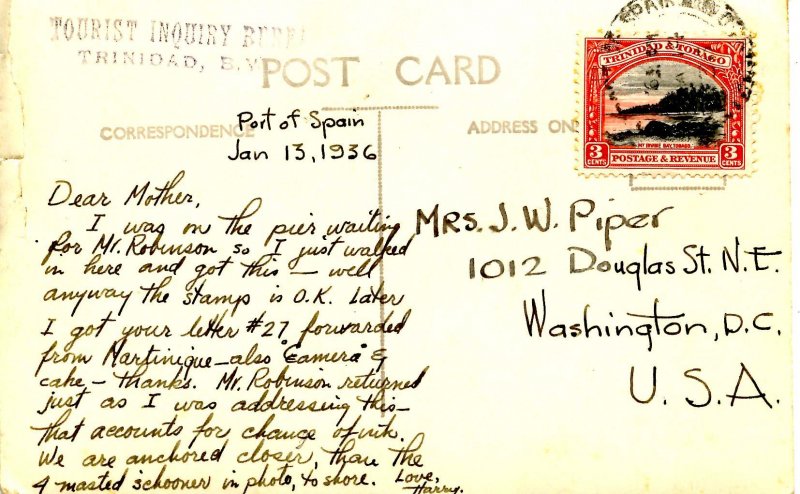 TOURIST INQUIRY
TRINIDAD, B.W.
POST CARD
CORRESPONDENCE
ADDRESS ON
TRINIDAD & TOBAGO
MT IRVINE BAY, TOBAGO.
3 CENTS POSTAGE & REVENUE 3 CENTS
Port of Spain
Jan 13, 1936
Dear Mother,
I was on the pier waiting
for Mr. Robinson so I just walked
in here and got this – well
anyway the stamps is O.K. Later
I got your letter #27 forwarded
from Martinique – also "camera" &
cake – thanks. Mr. Robinson returned
just as I was addressing this –
that accounts for change of ink.
We are anchored closer, than the
4 masted schooner in photo, to shore. Love,
Harry.
Mrs. J. W. Piper
1012 Douglas St. N.E.
Washington, D.C.
U.S.A.